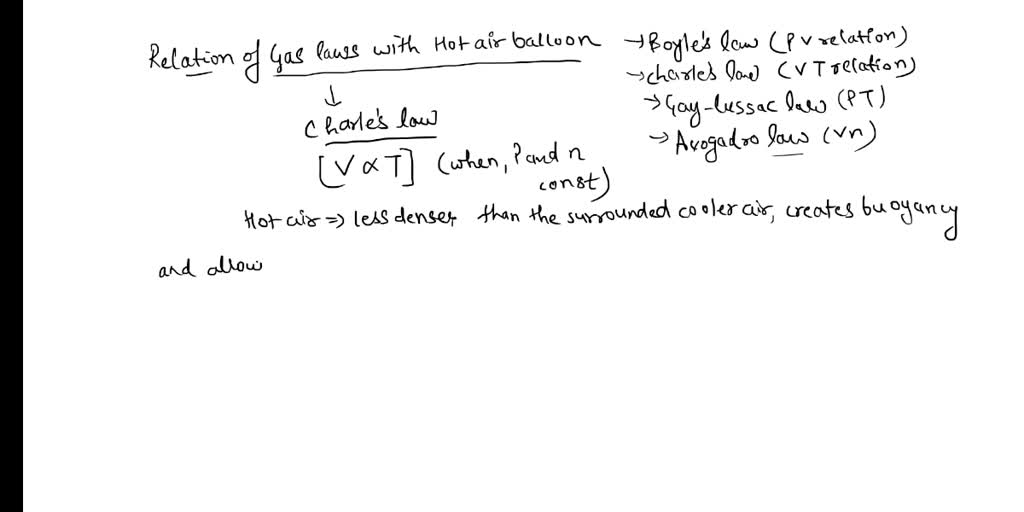 Relation of Gas laws with Hot air balloon
→ Boyle's law (PV relation)
→ Charle's law (VT relation)
→ Gay-lussac law (PT)
→ Avogadro law (Vn)
↓
Charle's law
[V ∝ T] (when, P and n
const)
Hot air ⇒ less denser than the surrounded cooler air, creates buoyancy
and allow